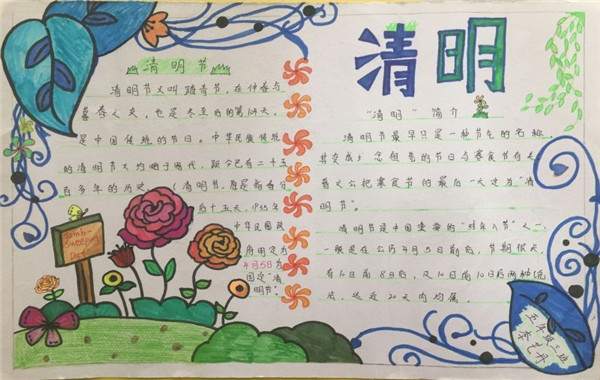 清明节
清明节又叫踏青节，在仲春与
暮春之交，也是冬至后的第104天，
是中国传统的节日。中华民族传统
的清明节大约始于周代，距今已有二千五
百多年的历史。（清明节，原是指春分
后十五天，1935年
中华民国政
府明定为
4月5日为
国定“清
明节”
Tomb-
Sweeping
Day
清明
“清明”简介
清明节最早只是一种节气的名称，
其变成纪念祖先的节日与寒食节有关。
晋文公把寒食节的最后一天定为“清
明节”。
清明节是中国重要的“时年八节”之一，
一般是在公历4月5日前后，节期很长，
有10日前8日后，及10日前10日后两种说
法，这近20天内均属。
五年级二班